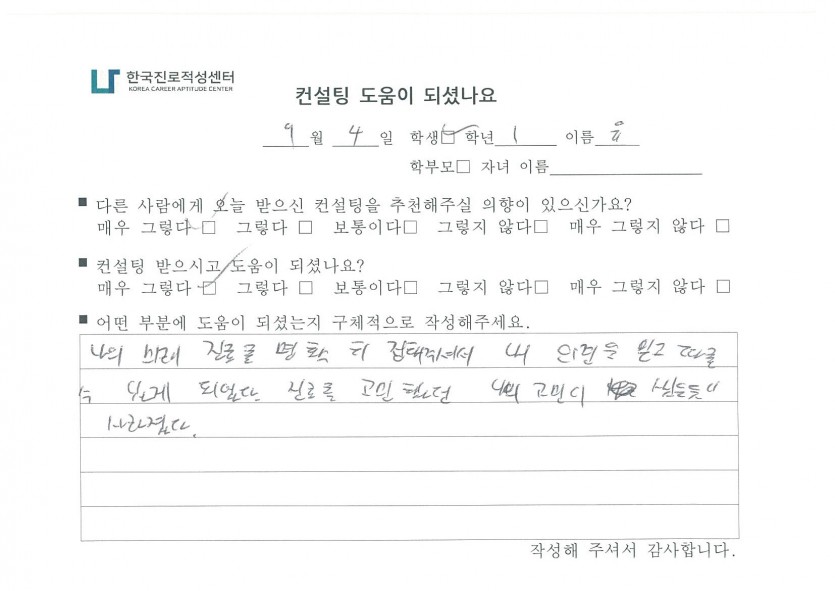 한국진로적성센터
KOREA CAREER APTITUDE CENTER
컨설팅 도움이 되셨나요
9월 4일 학생□ 학년 1 이름 윤
학부모□ 자녀 이름
■ 다른 사람에게 오늘 받으신 컨설팅을 추천해주실 의향이 있으신가요?
매우 그렇다 □ 그렇다 □ 보통이다□ 그렇지 않다□ 매우 그렇지 않다 □
■ 컨설팅 받으시고 도움이 되셨나요?
매우 그렇다 □ 그렇다 □ 보통이다□ 그렇지 않다□ 매우 그렇지 않다 □
■ 어떤 부분에 도움이 되셨는지 구체적으로 작성해주세요.
나의 미래 진로를 명확히 내 믿고 따를
수 있게 되었다. 진로를 고민했던 나의 고민이
사라졌다.
작성해 주셔서 감사합니다.